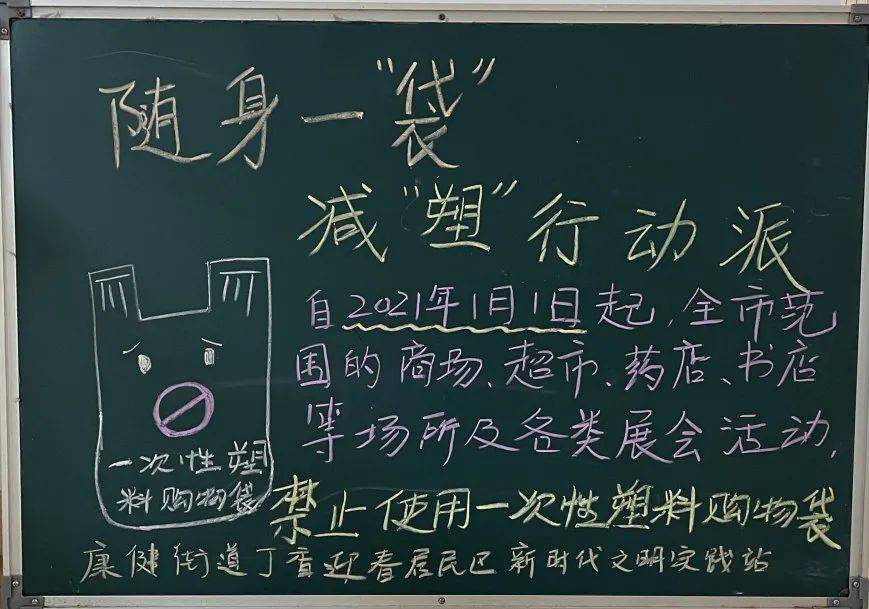 随身一“袋”
减“塑”行动派
自2021年1月1日起,全市范
围的商场、超市、药店、书店
等场所及各类展会活动,
禁止使用一次性塑料购物袋
一次性塑
料购物袋
康健街道丁香迎春居民区新时代文明实践站